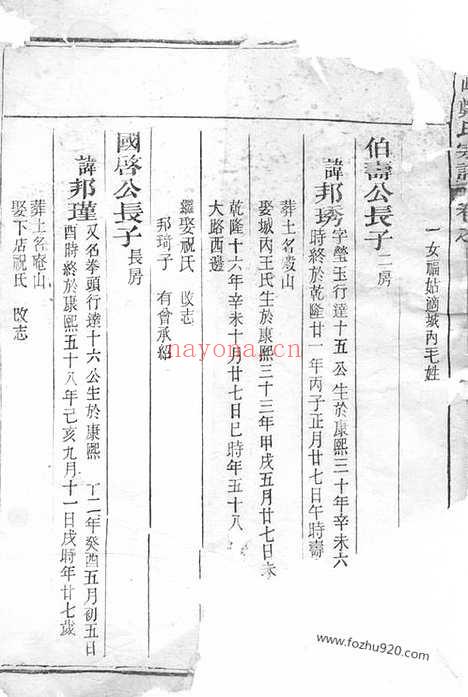 氏宗譜 卷之
一女福姑適城內毛姓
伯壽公長子 二房
諱邦琇 字瑩玉行達十五公生於康熙三十年辛未六
時終於乾隆廿一年丙子正月廿七日午時壽
葬土名 山
娶城內王氏生於康熙三十三年甲戌五月廿七日未
乾隆十六年辛未十月廿七日巳時年五十八
大路西邊
繼娶祝氏 改志
邦琦子 有曾承紹
國啓公長子 長房
諱邦瑾 又名拳頭行達十六公生於康熙 二年癸酉五月初五日
酉時終於康熙五十八年己亥九月十一日戌時年廿七歲
葬土名庵山
娶下店祝氏 改志
nayona.cn
www.fozhu920.com